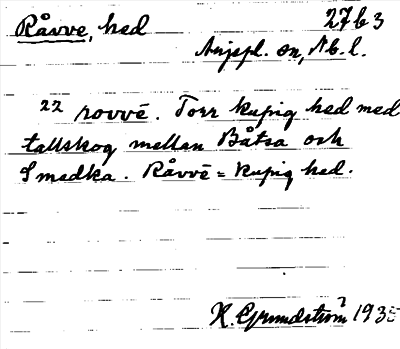 Råvve, hed 27 b 3
Arjepl. sn, Nb. l.
22 rovvē. Torr kupig hed med
tallskog mellan Båtsa och
Smedka. Råvvē = kupig hed.
H. Grundström 193